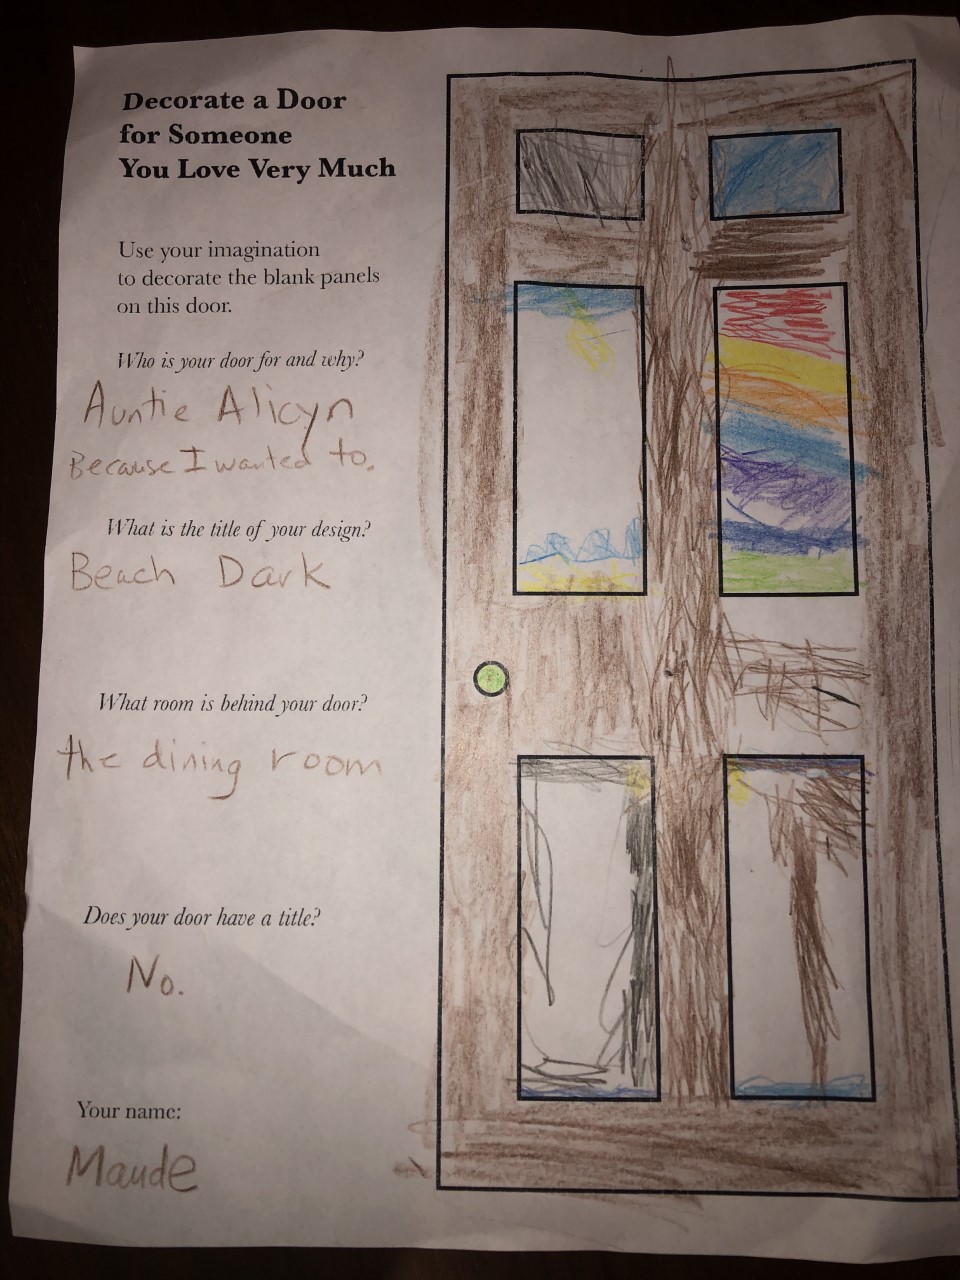 Decorate a Door
for Someone
You Love Very Much
Use your imagination
to decorate the blank panels
on this door.
Who is your door for and why?
Auntie Alicyn
Because I wanted to.
What is the title of your design?
Beach Dark
What room is behind your door?
the dining room
Does your door have a title?
No.
Your name:
Maude